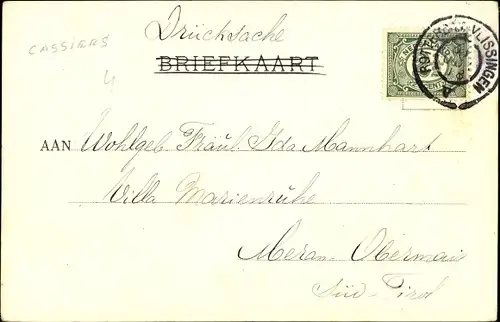 Drücksache
CASSIERS
BRIEFKAART
4
AAN Wohlgeb. Fräul. Ida Mannhart
Villa Marienrühe
Meran-Obermais
Süd-Tirol
VLISSINGEN